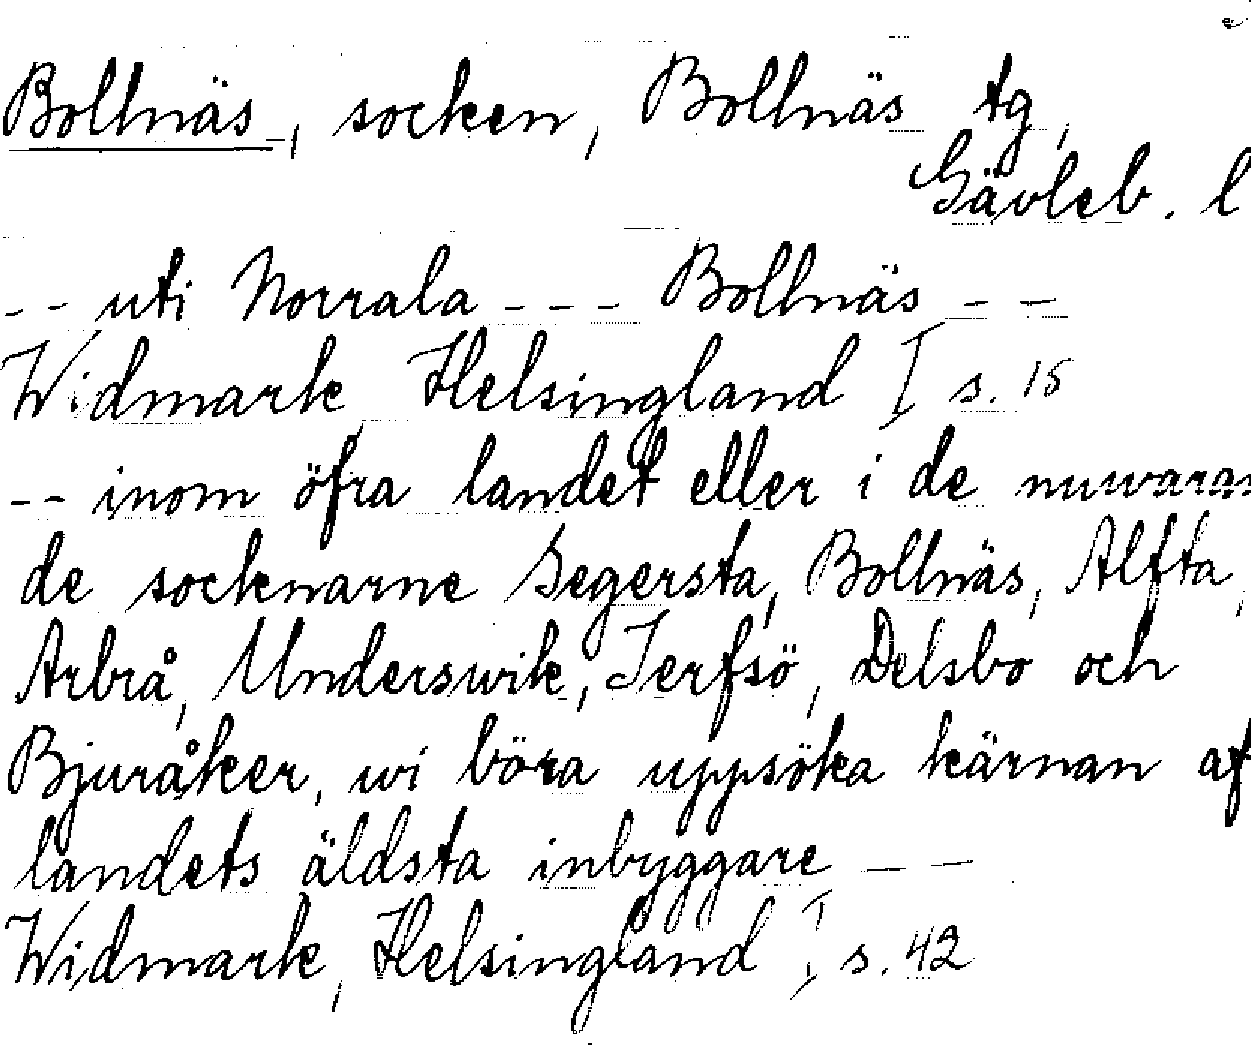 Bollnäs, socken, Bollnäs tg,
Gävleb. l
-- uti Norrala --- Bollnäs --
Widmark Helsingland I s. 15
-- inom öfra landet eller i de nuwaran
de socknarne Segersta, Bollnäs, Alfta,
Arbrå, Underswik, Jerfsö, Delsbo och
Bjuråker, wi böra uppsöka kärnan af
landets äldsta inbyggare --
Widmark, Helsingland I s. 42